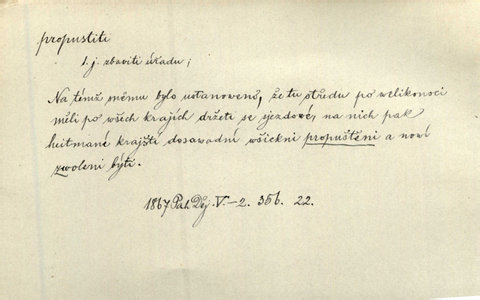 propustiti
t. j. zbaviti úřadu;
Na témž sněmu bylo ustanoveno, že tu středu po welikonoci
měli po wšech krajích držeti se sjezdowé, na nich pak
heitmané krajští dosawadní wšickni propuštěni a nowí
zwoleni býti.
1867 Pal. Děj. V.-2. 356. 22.